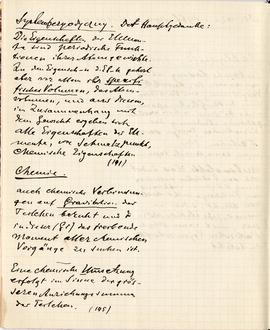 Der Hauptgedanke:
Die Eigenschaften der Elemen-
te sind periodische Funk-
tionen ihrer Atomgewichte.
Zu den Eigensch. d. El. gehört
aber vor allem das spezi-
fische Volumen, das Atom-
volumen, und aus diesem,
im Zusammenhang mit
dem Gewicht ergeben sich
alle Eigenschaften der Ele-
mente, wie Schmelzpunkt,
chemische Eigenschaften
(191)
Chemie.
auch chemische Verbindun-
gen auf Gravitation der
Teilchen beruht und
das treibende
Moment aller chemischen
Vorgänge zu suchen ist.
Eine chemische Umsetzung
erfolgt im Sinne der grös-
seren Anziehungssumme
der Teilchen. (195)